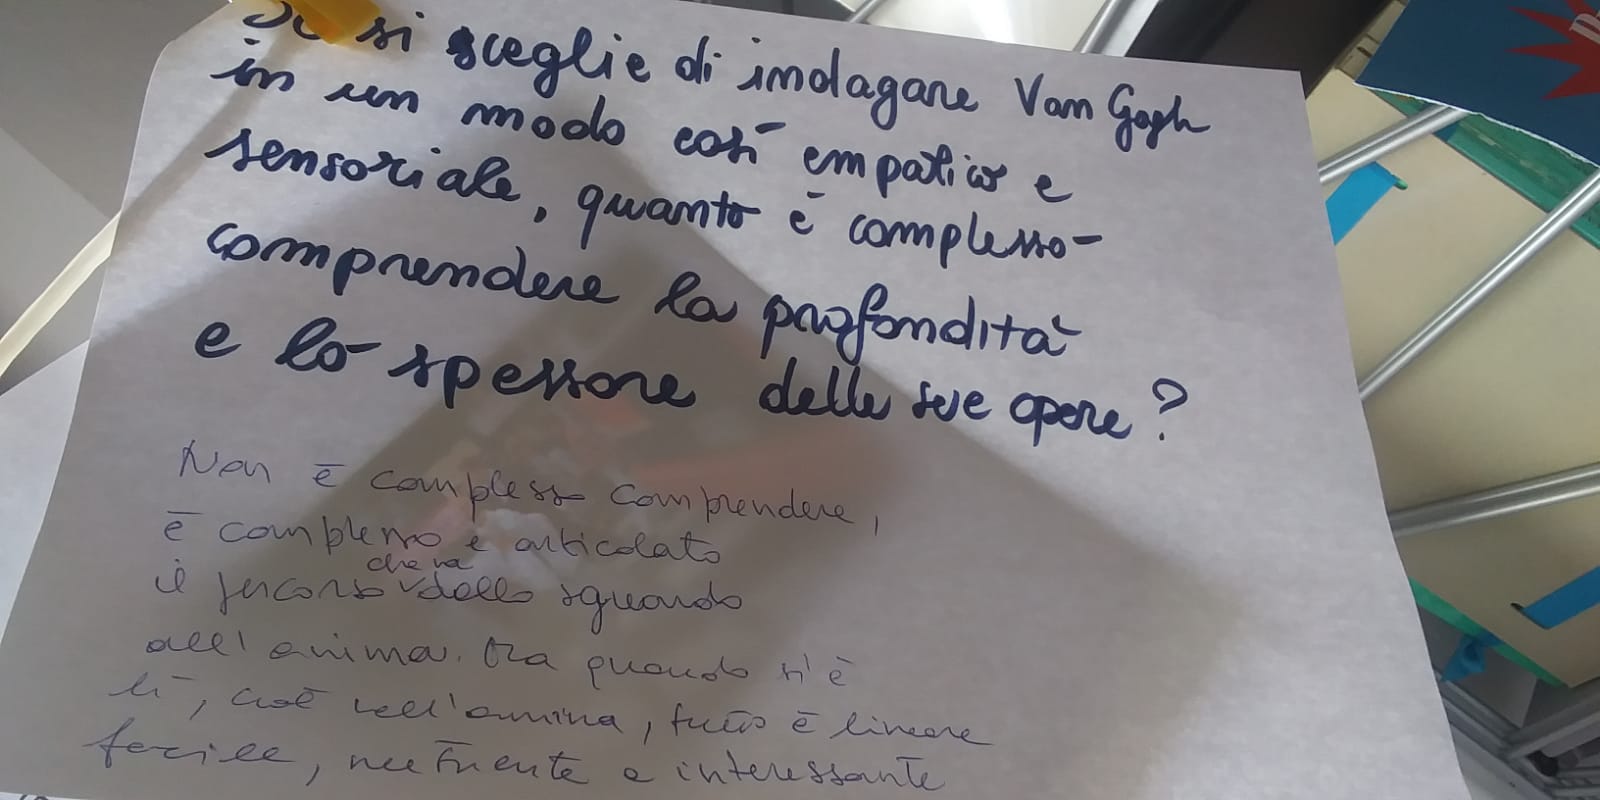 Se si sceglie di indagare Van Gogh
in un modo così empatico e
sensoriale, quanto è complesso
comprendere la profondità
e lo spessore delle sue opere?
Non è complesso comprendere,
è complesso e articolato
che va
il percorso dallo sguardo
all'anima. Ma quando si è
lì, cioè nell'anima, tutto è lineare
facile, nutriente e interessante